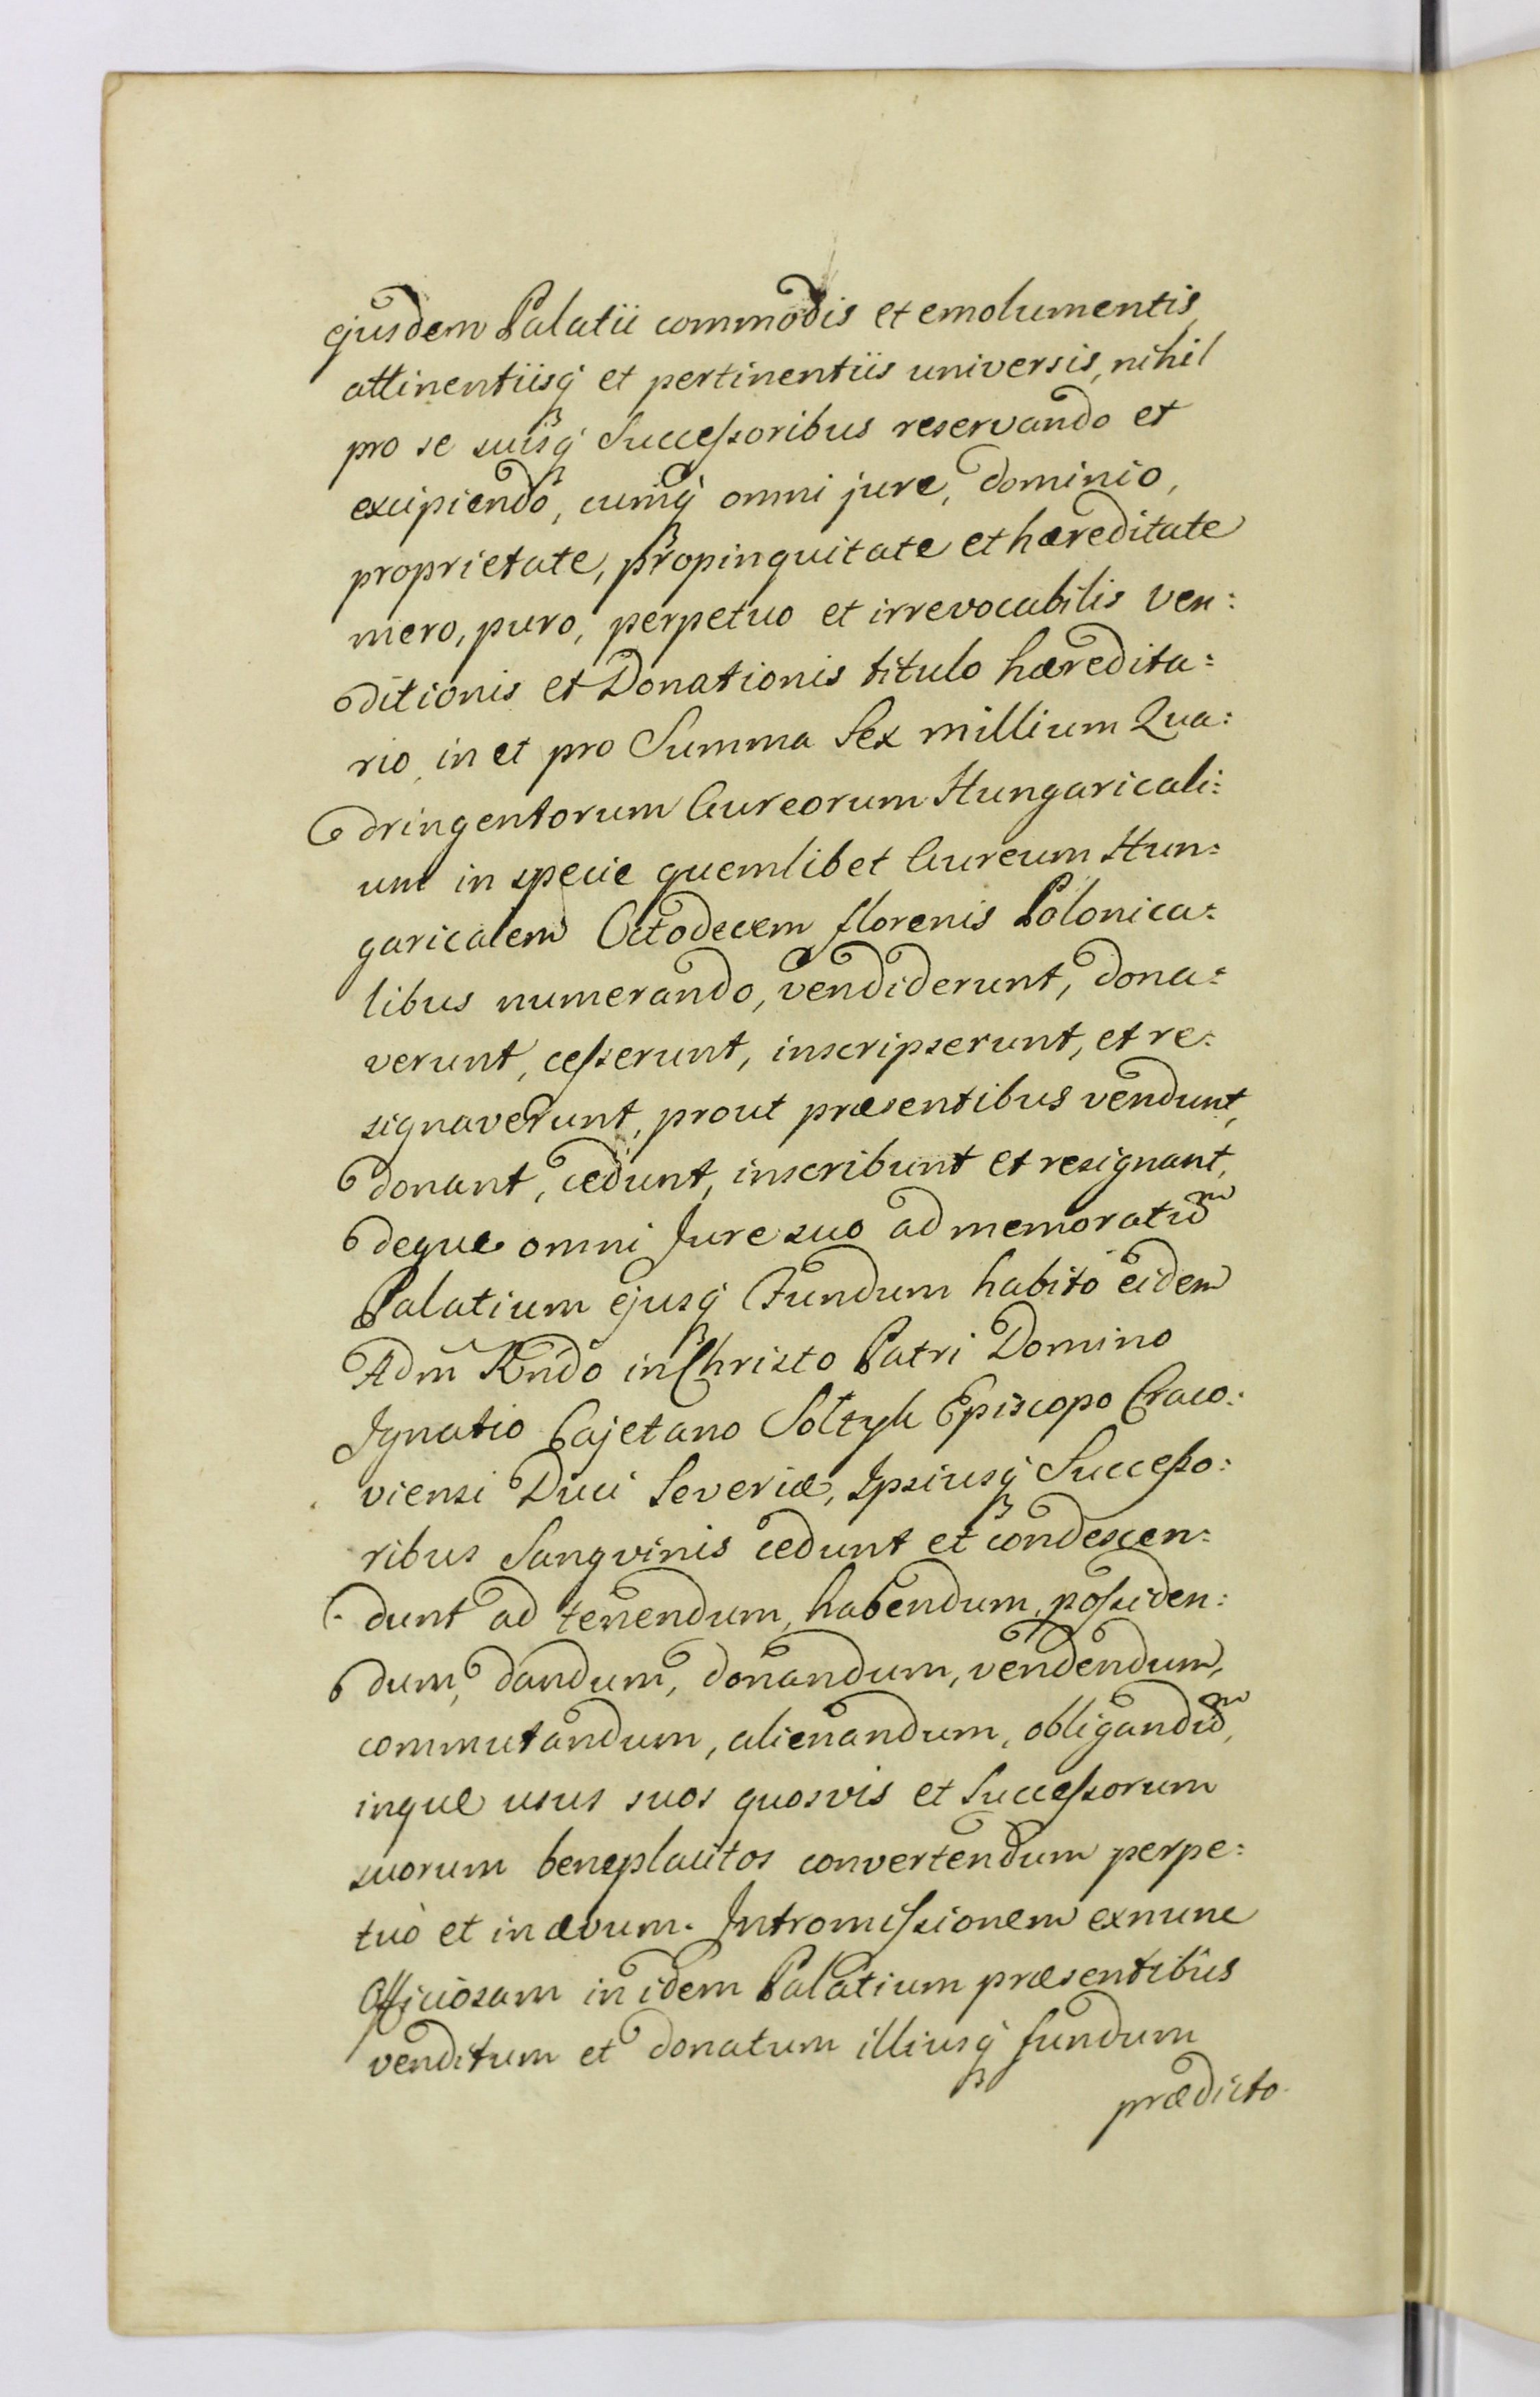 ejusdem Palatii commodis et emolumentis,
attinentiisq́ et pertinentiis universis, nihil
pro se suisq́ Successoribus reservando et
excipiendo, cumq́ omni jure, dominio,
proprietate, propinquitate et hæreditate
mero, puro, perpetuo et irrevocabilis Ven:
ditionis et Donationis titulo hæredita:
rio in et pro Summa Sex millium Qua:
dringentorum Aureorum Hungaricali:
um in specie quemlibet Aureum Hun:
garicalem Octodecem florenis Polonica:
libus numerando, vendiderunt, dona:
verunt, cesserunt, inscripserunt, et re:
signaverunt, prout præsentibus vendunt,
donant, cedunt, inscribunt et resignant,
deque omni Jure suo ad memoratum
Palatium ejusq́ Fundum habito eidem
Adm̃ Rñdo in Christo Patri Domino
Ignatio Cajetano Sołtyk Episcopo Craco:
viensi Duci Severiæ, Ipsiusq́ Successo:
ribus Sangvinis cedunt et condescen:
dunt ad tenendum, habendum, possiden:
dum, dandum, donandum, vendendum,
commutandum, alienandum, obligandum,
inque usus suos quosvis et Successorum
suorum beneplacitos convertendum perpe:
tuò et in ævum. Intromissionem exnunc
Officiosam in idem Palatium præsentibus
venditum et donatum illiusq́ fundum
prædicto